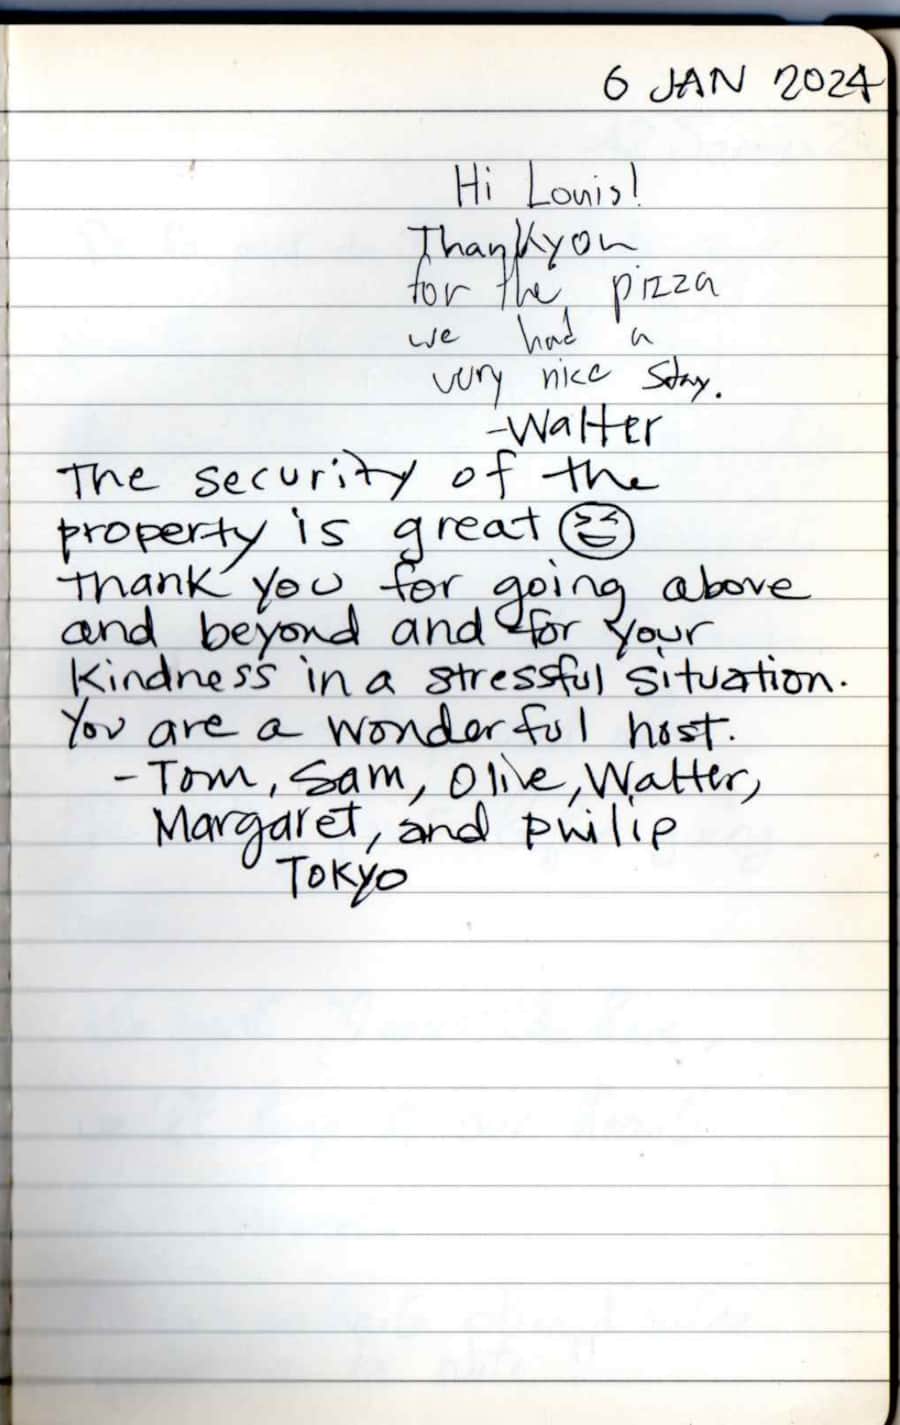 6 JAN 2024
Hi Louis!
Thankyou
for the pizza
we had a
very nice stay.
-Walter
The security of the
property is great
Thank you for going above
and beyond and for your
kindness in a stressful situation.
You are a wonderful host.
- Tom, Sam, Olive, Walter,
Margaret, and Philip
TOKYO